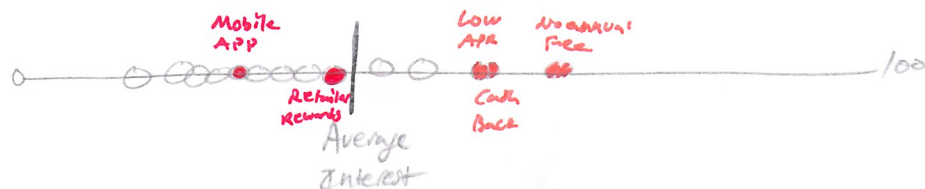 Mobile
APP
Low
APR
No annual
Fee
0
100
Retailer
Rewards
Cash
Back
Average
Interest